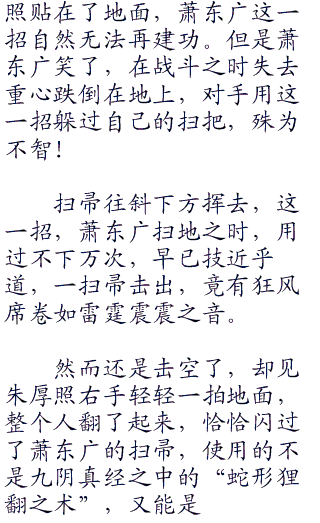 照贴在了地面，萧东广这一
招自然无法再建功。但是萧
东广笑了，在战斗之时失去
重心跌倒在地上，对手用这
一招躲过自己的扫把，殊为
不智！
扫帚往斜下方挥去，这
一招，萧东广扫地之时，用
过不下万次，早已技近乎
道，一扫帚击出，竟有狂风
席卷如雷霆震震之音。
然而还是击空了，却见
朱厚照右手轻轻一拍地面，
整个人翻了起来，恰恰闪过
了萧东广的扫帚，使用的不
是九阴真经之中的“蛇形狸
翻之术”，又能是